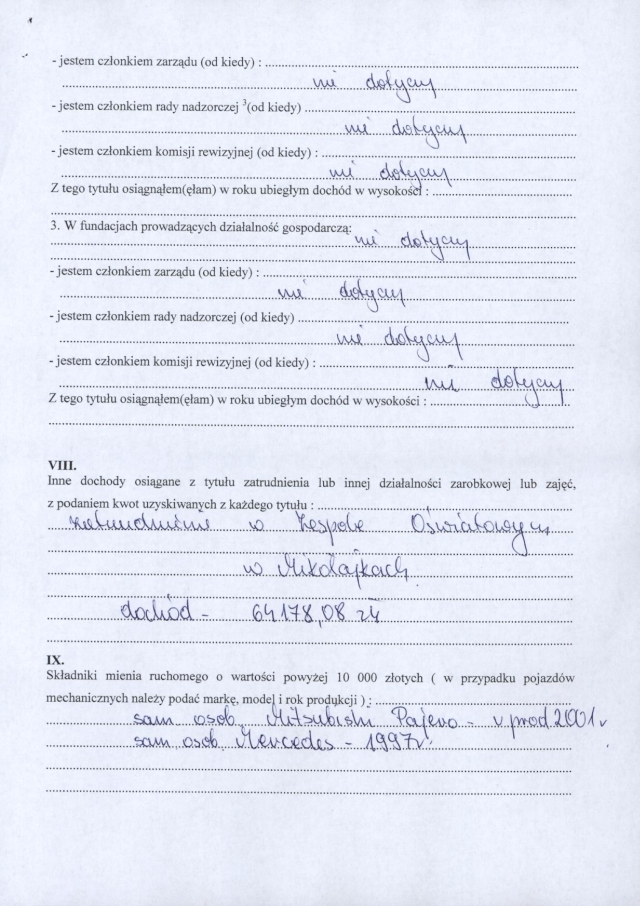 - jestem członkiem zarządu (od kiedy) :
nie dotyczy
- jestem członkiem rady nadzorczej ³(od kiedy)
nie dotyczy
- jestem członkiem komisji rewizyjnej (od kiedy) :
nie dotyczy
Z tego tytułu osiągnąłem(ęłam) w roku ubiegłym dochód w wysokości :
3. W fundacjach prowadzących działalność gospodarczą:
nie dotyczy
- jestem członkiem zarządu (od kiedy) :
nie dotyczy
- jestem członkiem rady nadzorczej (od kiedy)
nie dotyczy
- jestem członkiem komisji rewizyjnej (od kiedy) :
nie dotyczy
Z tego tytułu osiągnąłem(ęłam) w roku ubiegłym dochód w wysokości :
VIII.
Inne dochody osiągane z tytułu zatrudnienia lub innej działalności zarobkowej lub zajęć,
z podaniem kwot uzyskiwanych z każdego tytułu :
zatrudnienie w Zespole Oświatowym
w Mikołajkach
dochód - 64178,08 zł
IX.
Składniki mienia ruchomego o wartości powyżej 10 000 złotych ( w przypadku pojazdów
mechanicznych należy podać markę, model i rok produkcji ) :
sam osob. Mitsubishi Pajero - r. prod. 2001 r
sam osob. Mercedes - 1997r.